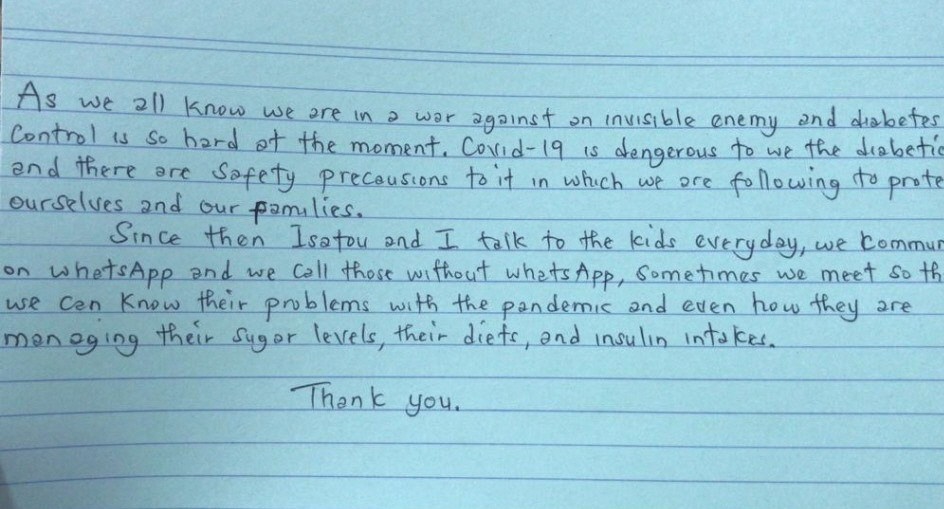 As we all know we are in a war against an invisible enemy and diabetes
Control is so hard at the moment. Covid-19 is dangerous to we the diabetic
and there are Safety precausions to it in which we are following to prote
ourselves and our families.
Since then Isatou and I talk to the kids everyday, we commun
on whatsApp and we Call those without whatsApp, Sometimes we meet so th
we Can Know their problems with the pandemic and even how they are
managing their sugar levels, their diets, and insulin intakes.
Thank you.